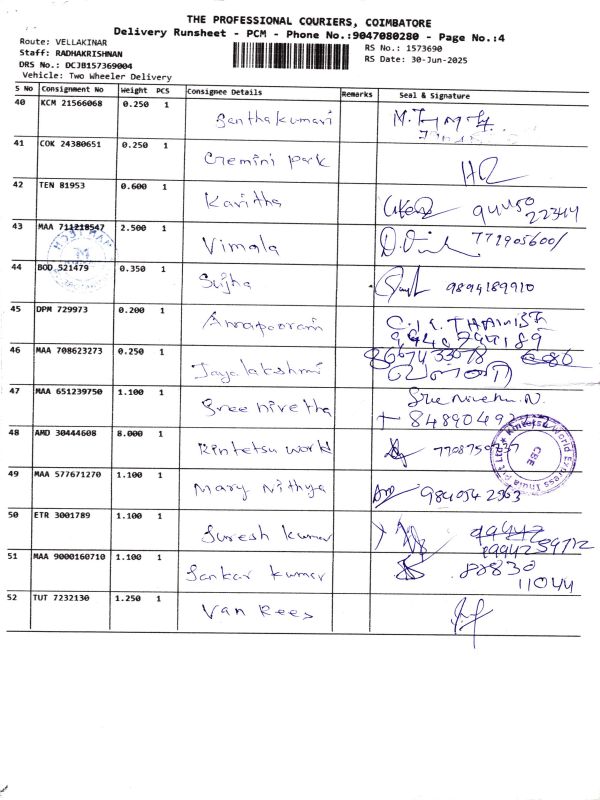 THE PROFESSIONAL COURIERS, COIMBATORE
Delivery Runsheet - PCM - Phone No.:9047080280 - Page No.:4
Route: VELLAKINAR
RS No.: 1573690
Staff: RADHAKRISHNAN
RS Date: 30-Jun-2025
DRS No.: DCJB157369004
Vehicle: Two Wheeler Delivery
S No Consignment No Weight PCS Consignee Details Remarks Seal & Signature
40 KCM 21566068 0.250 1 Senthakumari
41 COK 24380651 0.250 1 Gemini Park
42 TEN 81953 0.600 1 Kavitha 94450
22344
43 MAA 711218547 2.500 1 Vimala
44 BOD 521479 0.350 1 Sujha 9894189910
45 DPM 729973 0.200 1 Annapoorani
46 MAA 708623273 0.250 1 Jayalakshmi
47 MAA 651239750 1.100 1 Sree nivetha Sree Nivetha.N.
48 AMD 30444608 8.000 1 Kintetsu World
Kintetsu World Express India Pvt Ltd
CBE
49 MAA 577671270 1.100 1 Mary Nithya 9840542963
50 ETR 3001789 1.100 1 Suresh Kumar
51 MAA 9000160710 1.100 1 Sankar Kumar 88830
11044
52 TUT 7232130 1.250 1 Van Rees